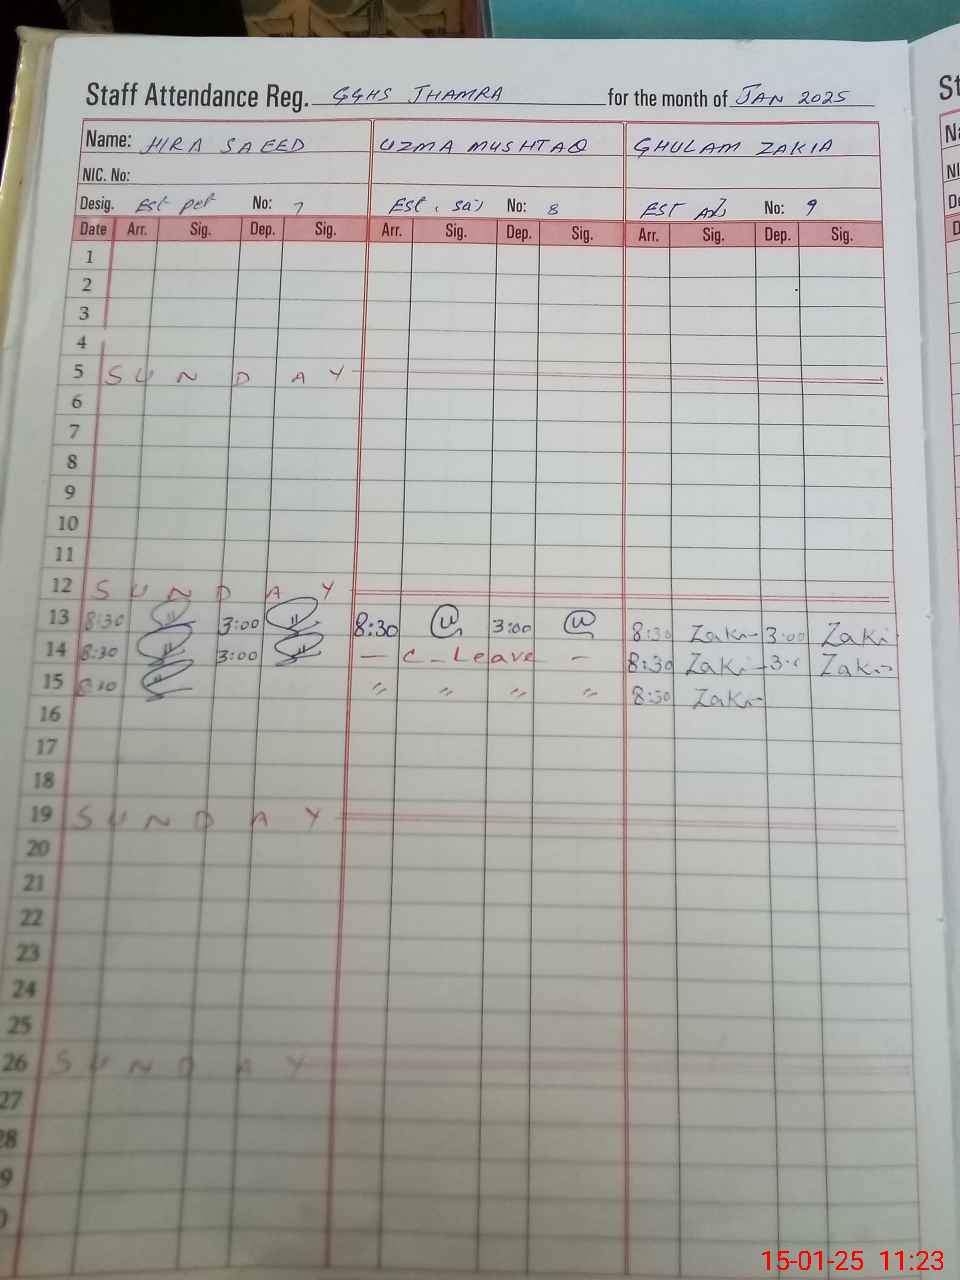 Staff Attendance Reg. GGHS JHAMRA for the month of JAN 2025
Name: HIRA SAEED UZMA MUSHTAQ GHULAM ZAKIA
NIC. No:
Desig. Est No: 7 Est. No: 8 EST No: 9
Date Arr. Sig. Dep. Sig. Arr. Sig. Dep. Sig. Arr. Sig. Dep. Sig.
1
2
3
4
5 SUNDAY
6
7
8
9
10
11
12 SUNDAY
13 8:30 3:00 8:30 3:00 8:30 Zaki 3:00 Zaki
14 8:30 3:00 — C-Leave — 8:30 Zaki Zaki
15 8:30 " " " " 8:30 Zaki
16
17
18
19 SUNDAY
20
21
22
23
24
25
26 SUNDAY
27
28
9
St
Na
NI
De
D
15-01-25 11:23